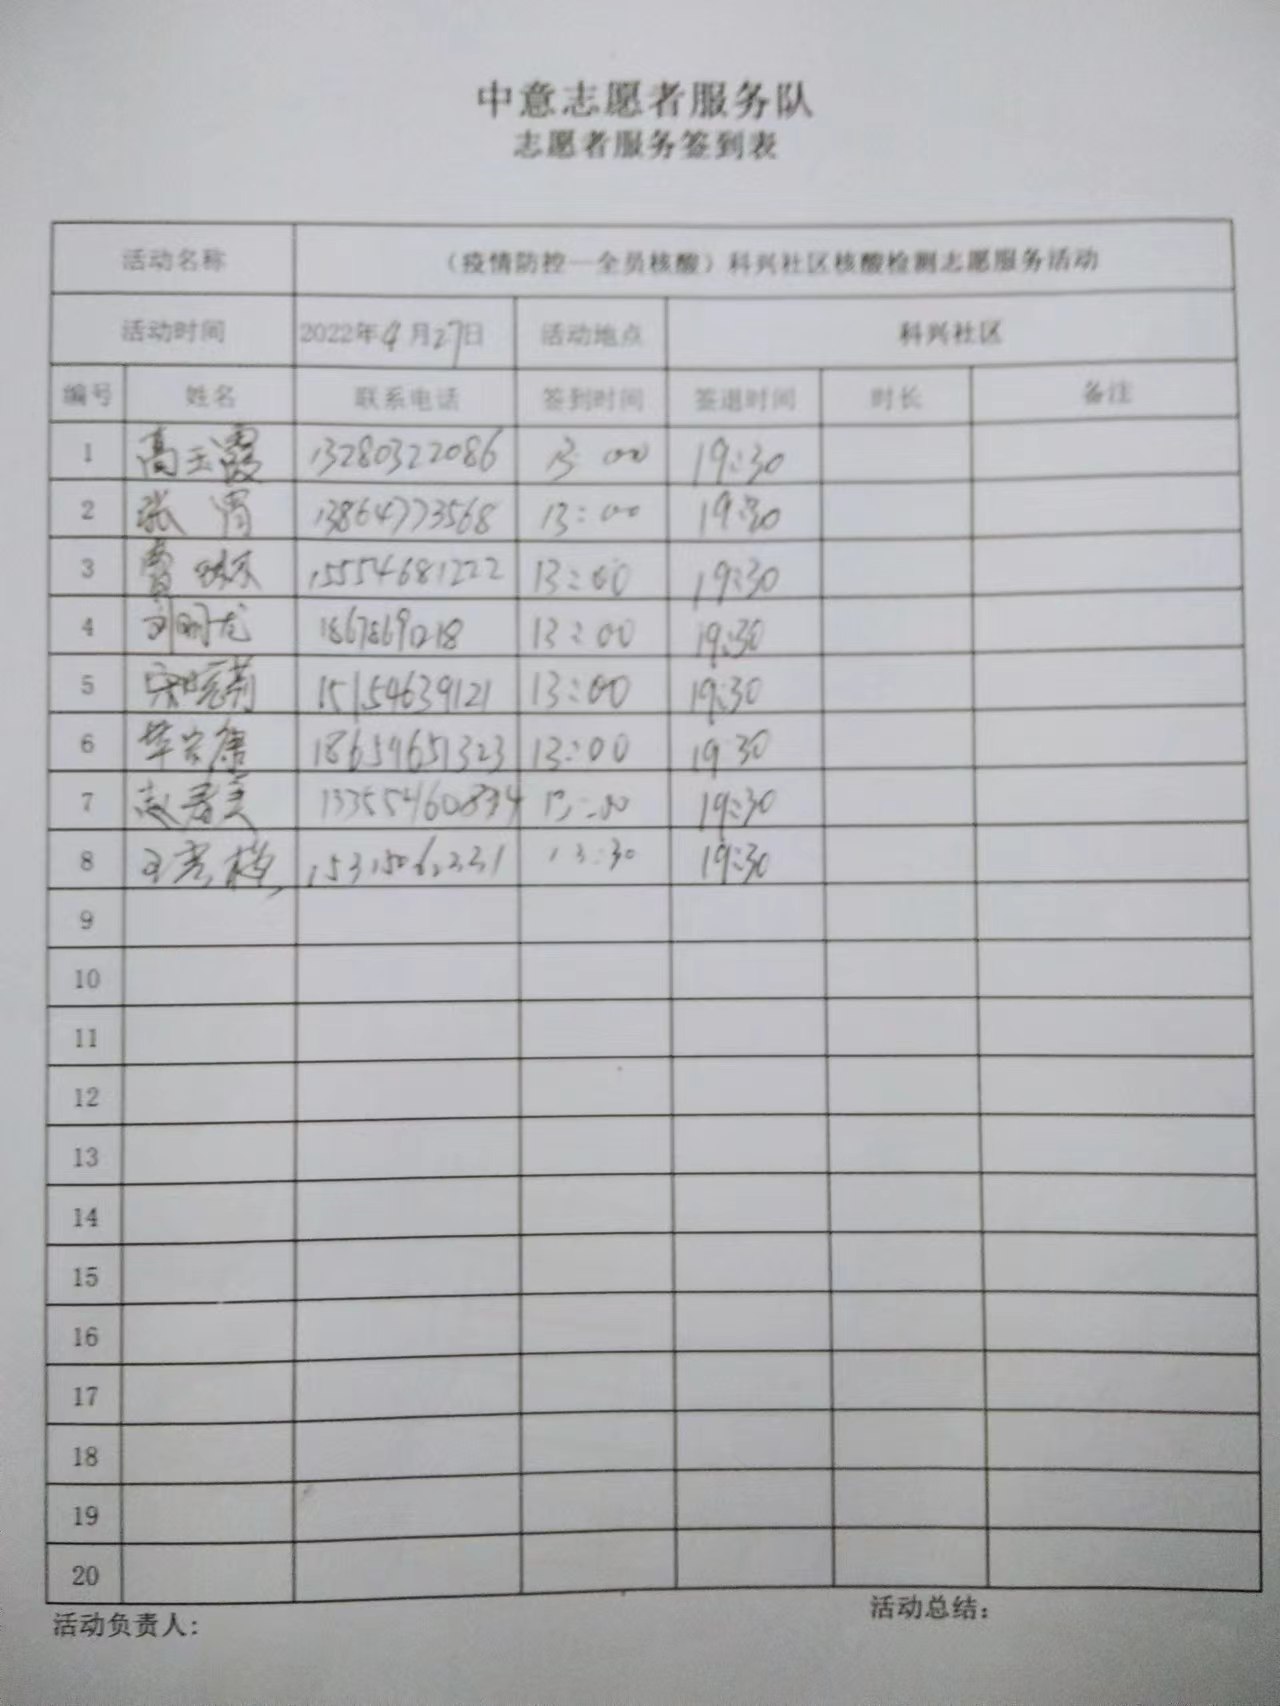 中意志愿者服务队
志愿者服务签到表
活动名称 （疫情防控—全员核酸）科兴社区核酸检测志愿服务活动
活动时间 2022年4月27日 活动地点 科兴社区
编号 姓名 联系电话 签到时间 签退时间 时长 备注
1 高玉霞 13280322086 13:00 19:30
2 张 13864773568 13:00 19:30
3 贾 15554681222 13:00 19:30
4 刘 13:00 19:30
5 宋晓莉 15154639121 13:00 19:30
6 18654651323 13:00 19:30
7 赵春美 13355460834 13:00 19:30
8 王 15315062331 13:30 19:30
9
10
11
12
13
14
15
16
17
18
19
20
活动负责人： 活动总结：